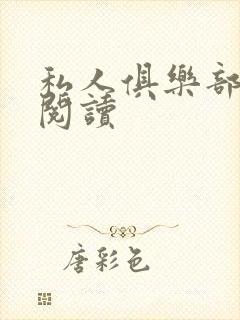 私人俱樂部
閱讀
唐彩色